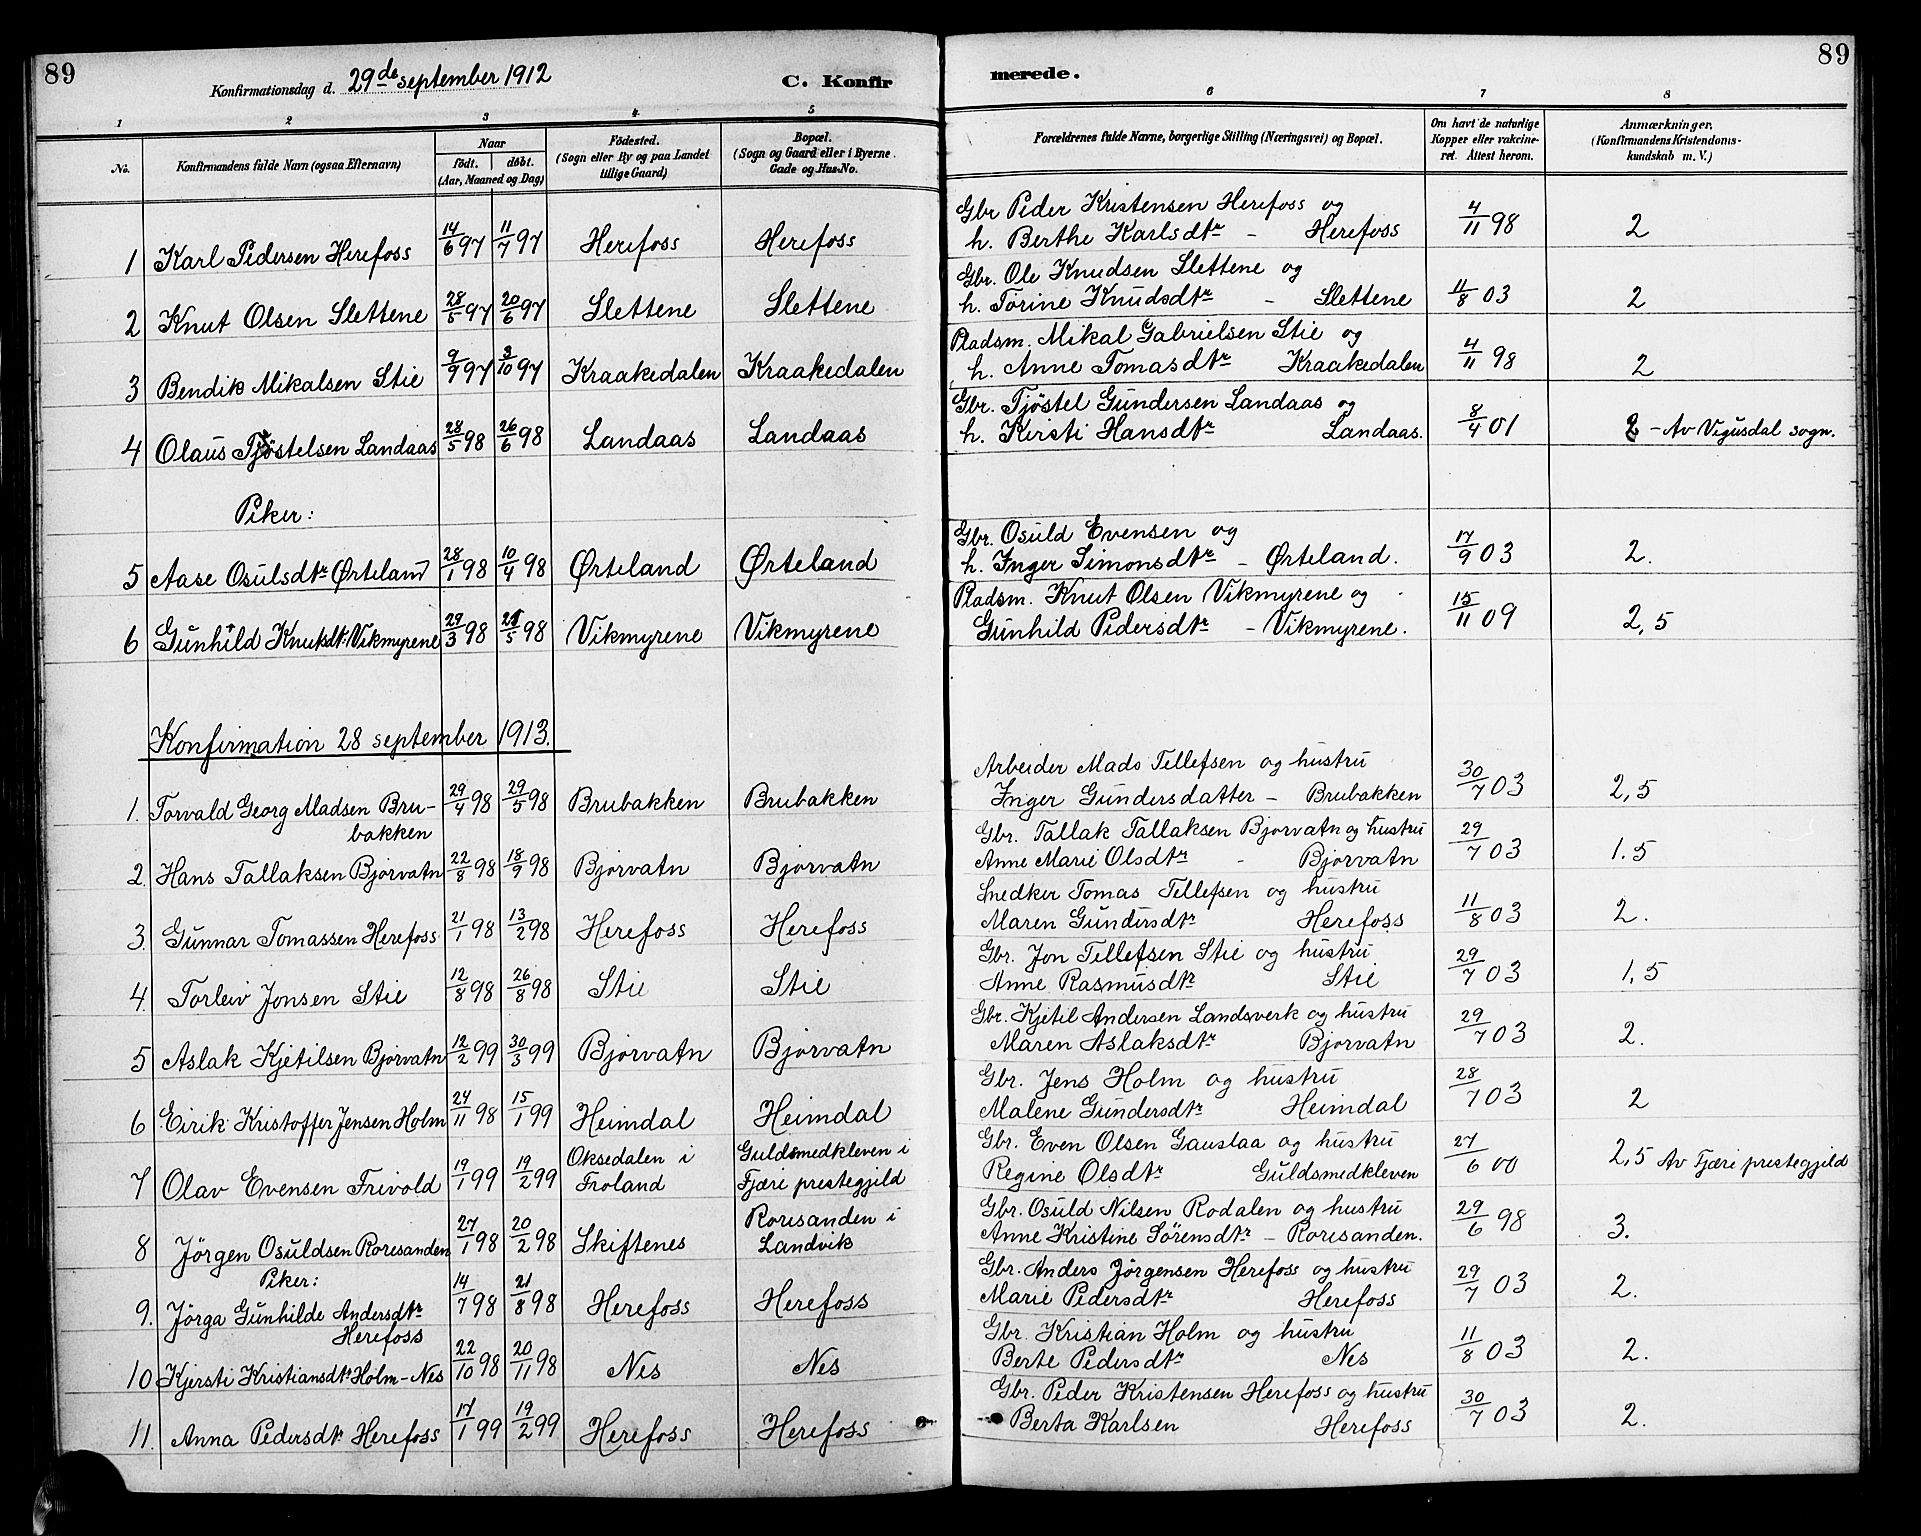 89
Konfirmationsdag d. 29de september 1912
C. Konfir
merede.
89
1 2 3 4. 5 6 7 8
No.
Konfirmandens fulde Navn (ogsaa Efternavn)
Naar
født. døbt.
(Aar, Maaned og Dag)
Födested.
(Sogn eller By og paa Landet
tillige Gaard)
Bopæl.
(Sogn og Gaard eller i Byerne
Gade og Hus-No.
Forældrenes fulde Navne, borgerlige Stilling (Næringsvei) og Bopæl.
Om havt de naturlige
Kopper eller vakcine-
ret. Attest herom.
Anmærkninger,
(Konfirmandens Kristendoms-
kundskab m. V.)
Gbr Peder Kristensen Herefoss og
1 Karl Pedersen Herefoss 14/6 97 11/7 97 Herefoss Herefoss h. Berthe Karlsdtr - Herefoss 4/11 98 2
Gbr. Ole Knudsen Slettene og
2 Knut Olsen Slettene 28/5 97 20/6 97 Slettene Slettene h. Torine Knudsdtr - Slettene 11/8 03 2
Pladsm. Mikal Gabrielsen Stie og
3 Bendik Mikalsen Stie 9/9 97 3/10 97 Kraakedalen Kraakedalen h. Anne Tomasdtr Kraakedalen 4/11 98 2
Gbr. Tjöstel Gundersen Landaas og
4 Olaus Tjöstelsen Landaas 28/5 98 26/6 98 Landaas Landaas h. Kirsti Hansdtr Landaas. 8/4 01 2 - Av Vegusdal sogn.
Piker:
Gbr. Osuld Evensen og
5 Aase Osulsdtr Ørteland 28/1 98 10/4 98 Ørteland Ørteland h. Inger Simonsdtr - Ørteland. 17/9 03 2.
Pladsm. Knut Olsen Vikmyrene og
6 Gunhild Knutsdt. Vikmyrene 29/3 98 /5 98 Vikmyrene Vikmyrene Gunhild Pedersdtr - Vikmyrene. 15/11 09 2,5
Konfirmation 28 september 1913.
Arbeider Mads Tellefsen og hustru
1. Torvald Georg Madsen Bru- 29/4 98 29/5 98 Brubakken Brubakken Inger Gundersdatter - Brubakken 30/7 03 2,5
bakken
Gbr. Tallak Tallaksen Bjorvatn og hustru
2. Hans Tallaksen Bjorvatn 22/8 98 18/9 98 Bjorvatn Bjorvatn Anne Marie Olsdtr - Bjorvatn 29/7 03 1.5
Snedker Tomas Tellefsen og hustru
3. Gunnar Tomassen Herefoss 21/1 98 13/2 98 Herefoss Herefoss Maren Gundersdtr Herefoss 11/8 03 2.
Gbr. Jon Tellefsen Stie og hustru
4. Torleiv Jonsen Stie 12/8 98 26/8 98 Stie Stie Anne Rasmusdtr Stie 29/7 03 1,5
Gbr. Kjetil Andersen Landsverk og hustru
5 Aslak Kjetilsen Bjorvatn 12/2 99 30/3 99 Bjorvatn Bjorvatn Maren Aslaksdtr Bjorvatn 29/7 03 2.
Gbr. Jens Holm og hustru
6 Eirik Kristoffer Jensen Holm 24/11 98 15/1 99 Heimdal Heimdal Malene Gundersdtr Heimdal 28/7 03 2
Gbr. Even Olsen Gauslaa og hustru
7 Olav Evensen Frivold 19/1 99 19/2 99 Oksedalen i Froland Guldsmedkleven i Fjære prestegjild Regine Olsdtr Guldsmedkleven 27/6 00 2,5 Av Fjære prestegjild
Gbr. Osuld Nilsen Rodalen og hustru
8 Jörgen Osuldsen Roresanden 27/1 98 20/2 98 Skiftenes Roresanden i Landvik Anne Kristine Sörensdtr - Roresanden. 29/6 98 3.
Piker:
Gbr. Anders Jörgensen Herefoss og hustru
9. Jörga Gunhilde Andersdtr 14/7 98 21/8 98 Herefoss Herefoss Marie Pedersdtr Herefoss 29/7 03 2.
Herefoss
Gbr. Kristian Holm og hustru
10 Kjersti Kristiansdtr Holm-Nes 22/10 98 20/11 98 Nes Nes Berte Pedersdtr Nes 11/8 03 2.
Gbr. Peder Kristensen Herefoss og hustru
11. Anna Pedersdtr Herefoss 17/1 99 19/2 99 Herefoss Herefoss Berta Karlsen Herefoss 30/7 03 2.